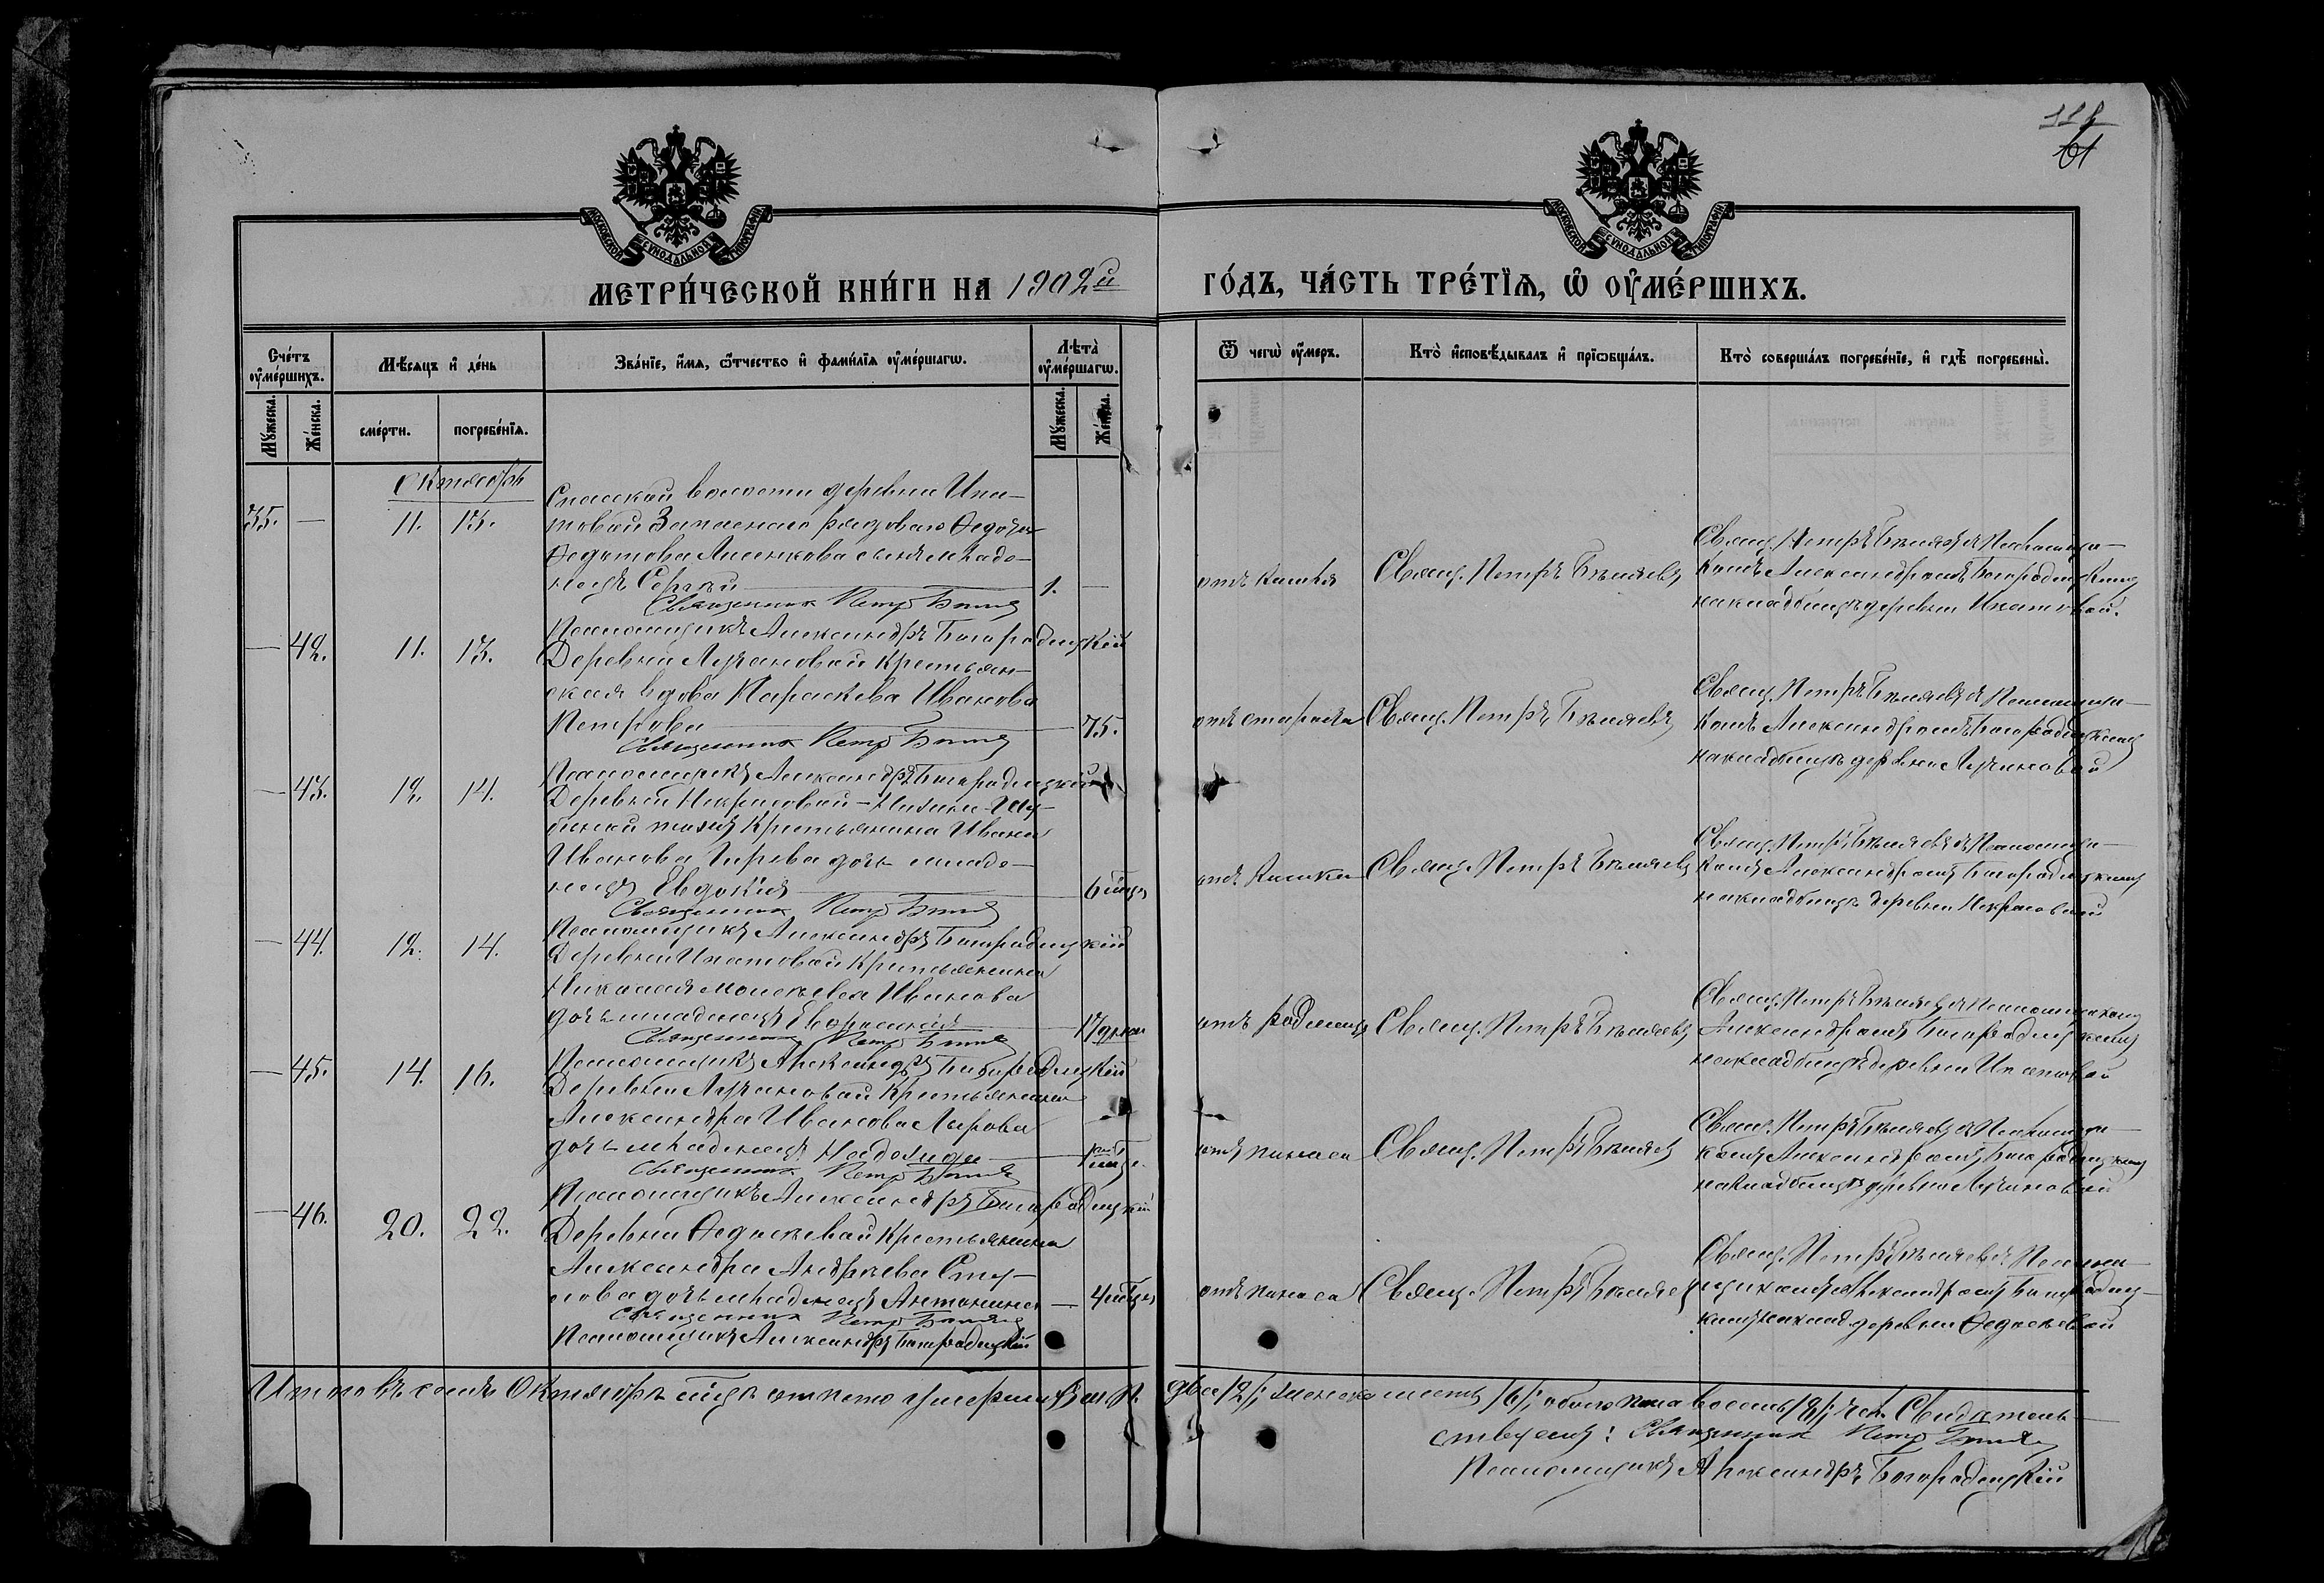 118
61
МОСКОВСКОЙ СУНОДАЛЬНОЙ ТИПОГРАФІИ
МОСКОВСКОЙ СУНОДАЛЬНОЙ ТИПОГРАФІИ
МЕТРИ́ЧЕСКОЙ КНИ́ГИ НА 1902й
ГО́ДЪ, ЧА́СТЬ ТРЕ́ТЇѦ, Ѡ҆ ОУ҆МЕ́РШИХЪ.
Сче́тъ оу҆ме́ршихъ.
Мѣ́сяцъ и҆ де́нь
Зва́нїе, и҆́мя, ѻ҆́тчество и҆ фами́лїя оу҆ме́ршагѡ.
Лѣта̀ оу҆ме́ршагѡ.
Ѿ чегѡ̀ оу҆́меръ.
Кто̀ и҆сповѣ́дывалъ и҆ прїѡбща́лъ.
Кто̀ соверша́лъ погребе́нїе, и҆ гдѣ̀ погребены̀.
Му́жеска.
Же́нска.
сме́рти.
погребе́нїя.
Му́жеска.
Же́нска.
Октябрь
35. — 11. 13.
Спасской волости деревни Ипа-
товой Запаснаго рядоваго Ѳедота
Ѳедотова сынъ младе-
нецъ Сергѣй — 1. —
Священникъ Петръ Бѣляевъ
Псаломщикъ Александръ Богородицкій
отъ кашля
Свящ. Петръ Бѣляевъ
Свящ. Петръ Бѣляевъ съ Псаломщи-
комъ Александромъ Богородицкимъ
на кладбищѣ деревни Ипатовой.
— 42. 11. 13.
Деревни Лучановой Крестьян-
ская вдова Параскева Иванова
Петрова — 75.
Священникъ Петръ Бѣляевъ
Псаломщикъ Александръ Богородицкій
отъ старости
Свящ. Петръ Бѣляевъ
Свящ. Петръ Бѣляевъ съ Псаломщи-
комъ Александромъ Богородицкимъ
на кладбищѣ деревни Лучановой
— 43. 12. 14.
Деревни Некрасовой
Крестьянина Ивана
Иванова дочь младе-
нецъ Евдокія — 6 мѣсц.
Священникъ Петръ Бѣляевъ
Псаломщикъ Александръ Богородицкій
отъ кашля
Свящ. Петръ Бѣляевъ
Свящ. Петръ Бѣляевъ съ Псаломщи-
комъ Александромъ Богородицкимъ
на кладбищѣ деревни Некрасовой
— 44. 12. 14.
Деревни Ипатовой Крестьянина
Николая Моисѣева Иванова
дочь младенецъ — 17 дней
Священникъ Петръ Бѣляевъ
Псаломщикъ Александръ Богородицкій
отъ родимца
Свящ. Петръ Бѣляевъ
Свящ. Петръ Бѣляевъ съ Псаломщикомъ
Александромъ Богородицкимъ
на кладбищѣ деревни Ипатовой
— 45. 14. 16.
Деревни Лучановой Крестьянина
Александра Иванова Лырова
дочь младенецъ Надежда —
Священникъ Петръ Бѣляевъ
Псаломщикъ Александръ Богородицкій
отъ поноса
Свящ. Петръ Бѣляевъ
Свящ. Петръ Бѣляевъ съ Псаломщи-
комъ Александромъ Богородицкимъ
на кладбищѣ деревни Лучановой
— 46. 20. 22.
Деревни Ѳедосѣевой Крестьянина
Александра Андреева
дочь младенецъ Антонина — 4 мѣсц.
Священникъ Петръ Бѣляевъ
Псаломщикъ Александръ Богородицкій
отъ поноса
Свящ. Петръ Бѣляевъ
Свящ. Петръ Бѣляевъ съ Псалом-
щикомъ Александромъ Богородиц-
кимъ на клад. деревни Ѳедосѣевой
Итого въ семъ Октябрѣ мѣсцѣ умершихъ м. п. два /2/; женска шесть /6/; обоего пола восемь /8/; чел. Свидѣтель-
ствуемъ: Священникъ Петръ Бѣляевъ
Псаломщикъ Александръ Богородицкій